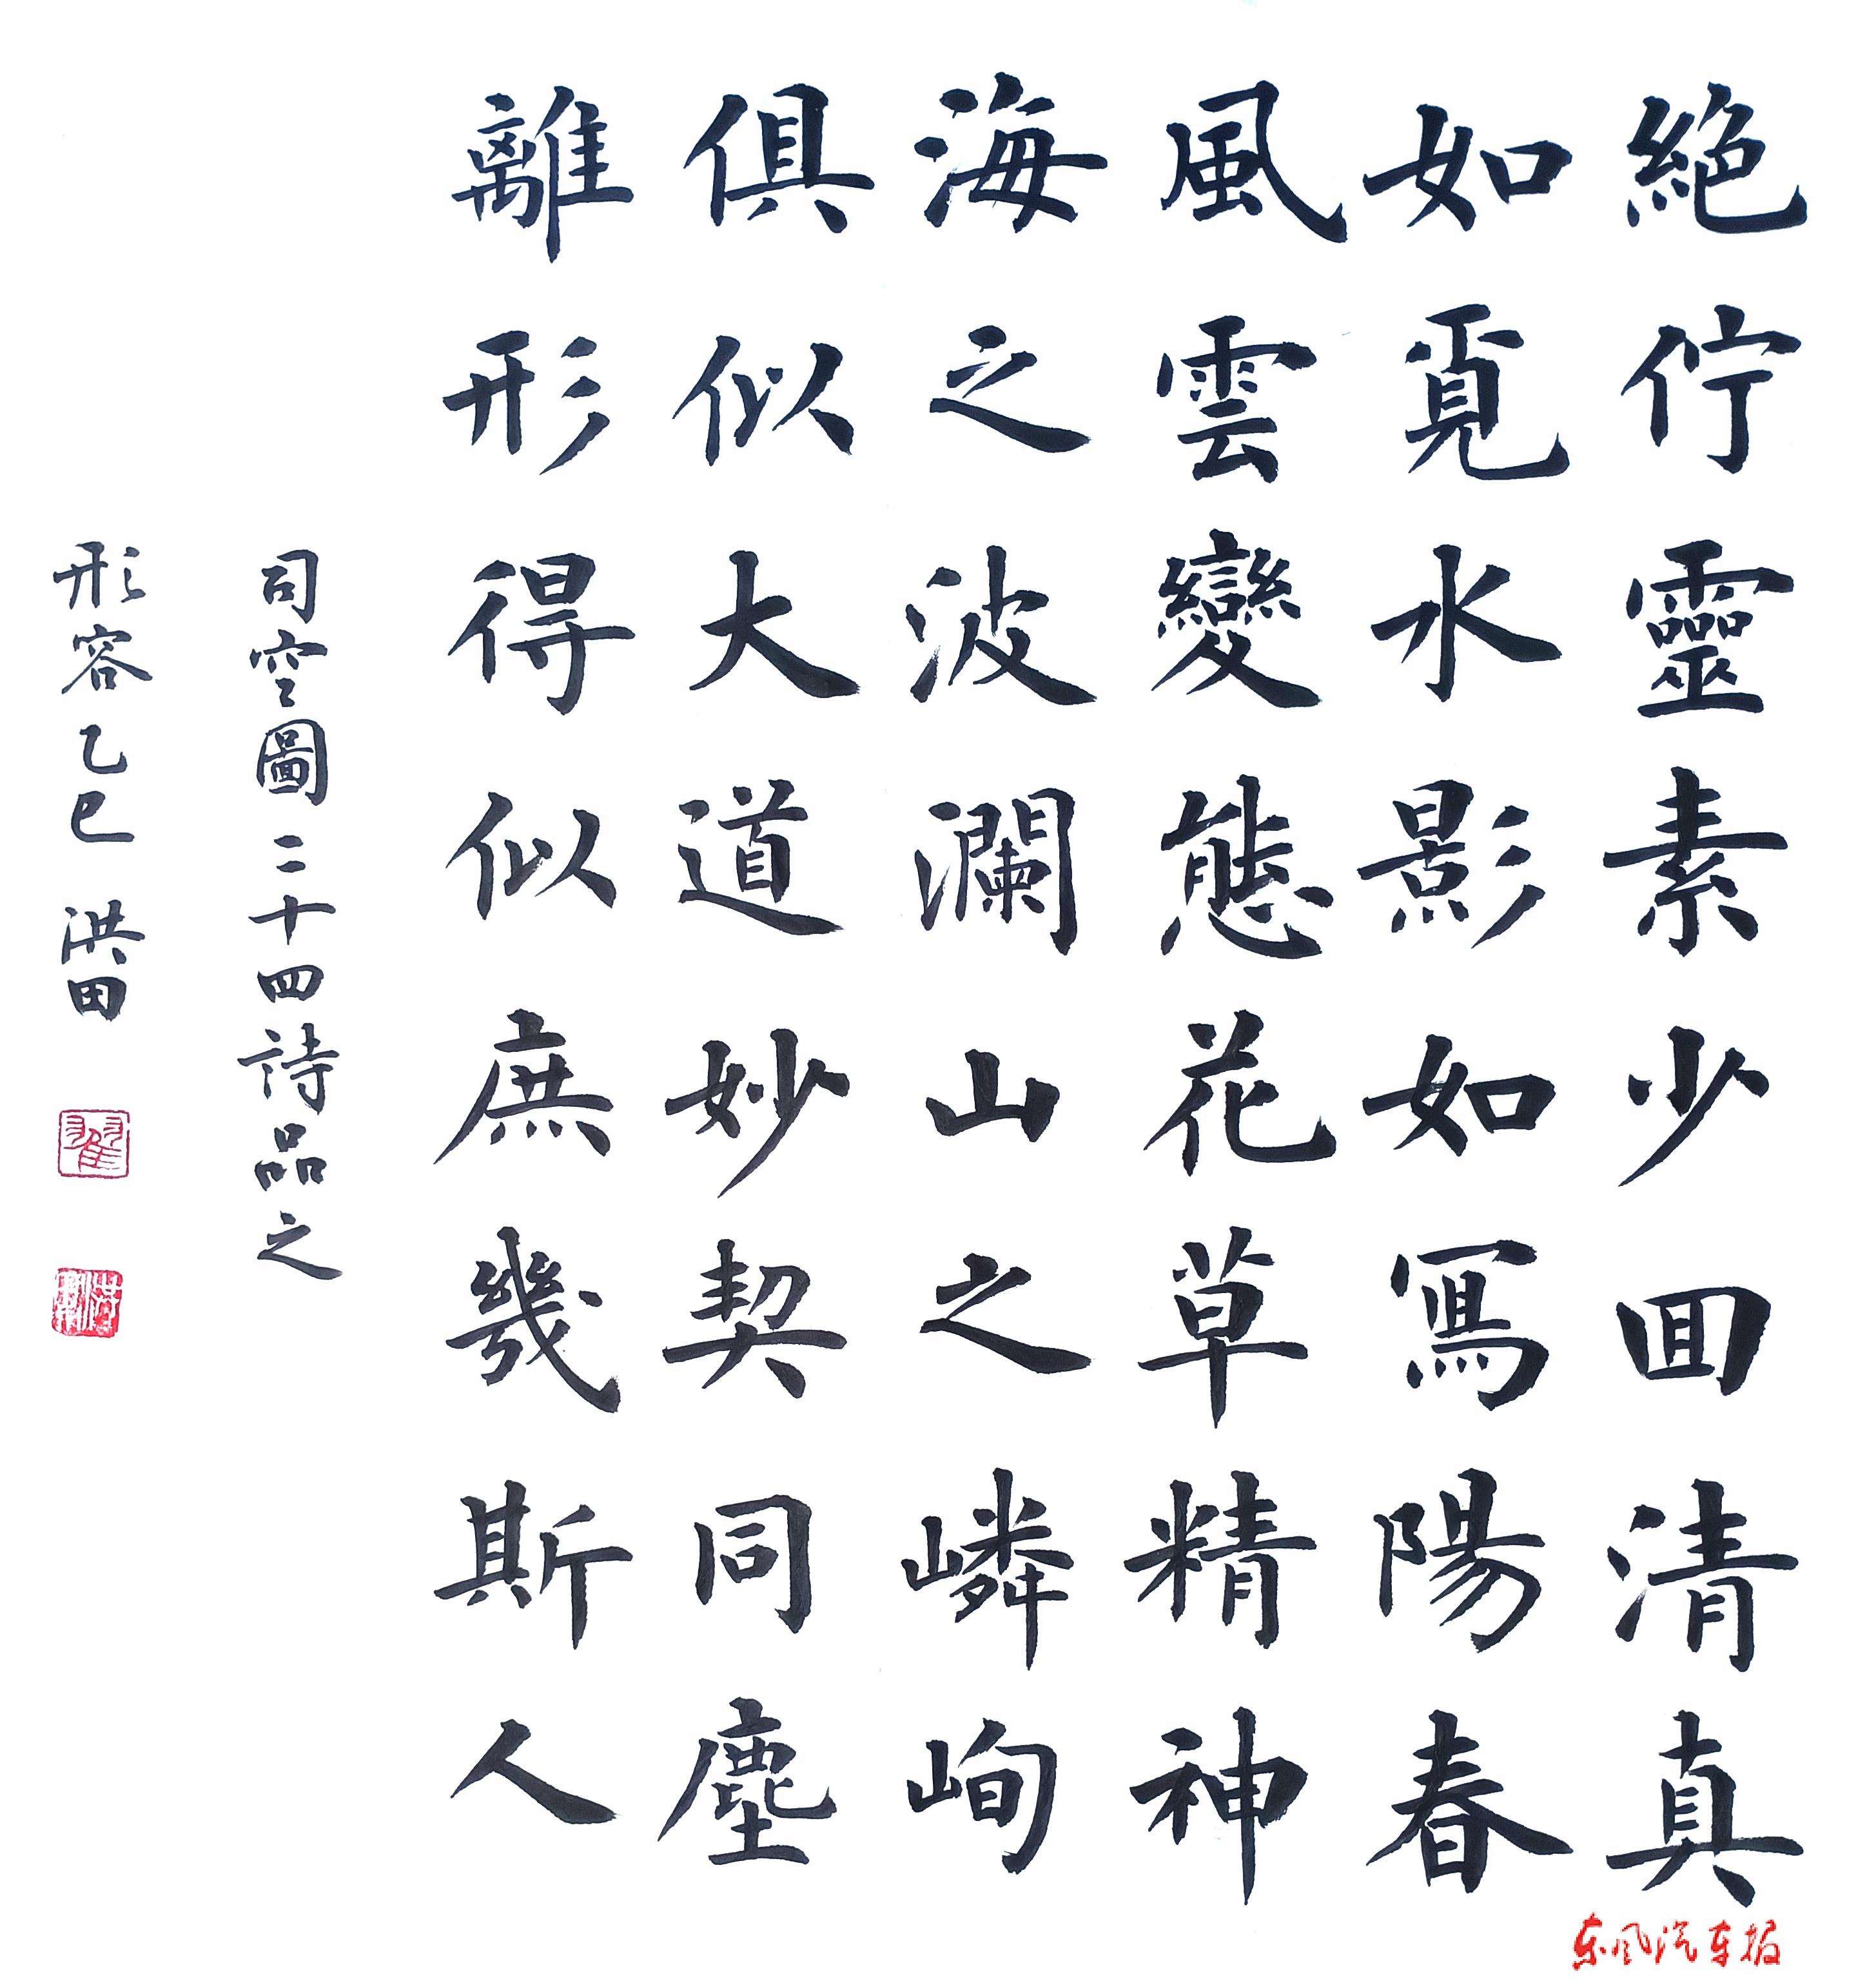 絕佇靈素少囬清真
如覓水影如寫陽春
風雲變態花草精神
海之波瀾山之嶙峋
俱似大道妙契同塵
離形得似庶幾斯人
司空圖二十四詩品之
形容乙巳 洪田
翟
东风汽车报